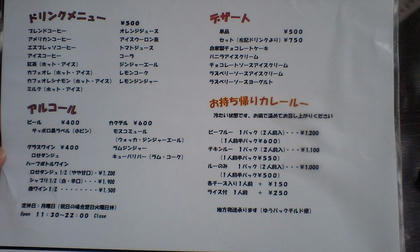 ドリンクメニュー
￥500
ブレンドコーヒー
アメリカンコーヒー
エスプレッソコーヒー
アイスコーヒー
紅茶（ホット・アイス）
カフェオレ（ホット・アイス）
カフェオレシナモン（ホット・アイス）
ミルク（ホット・アイス）
オレンジジュース
アイスウーロン茶
トマトジュース
コーラ
ジンジャーエール
レモンコーク
レモンジンジャー
アルコール
ビール ￥400
サッポロ黒ラベル（小ビン）
グラスワイン ￥400
ロゼダンジュ
ハーフボトルワイン
ロゼダンジュ 1/2（やや甘口）・・・￥1,200
シャブリ 1/2（白・辛口）・・・￥1,900
赤ワイン 1/2・・・￥1,500
カクテル ￥600
モスコミュール
（ウォッカ・ジンジャーエール）
ラムジンジャー
キューバリバー（ラム・コーク）
定休日：月曜日（祝日の場合翌日火曜日休）
Open 11:30～22:00 Close
デザート
単品 ￥500
セット（左記ドリンクより）￥750
自家製チョコレートケーキ
バニラアイスクリーム
チョコレートソースアイスクリーム
ラズベリーソースアイスクリーム
ラズベリーソースヨーグルト
お持ち帰りカレールー
冷たい状態です、お鍋で温めてお召し上がりください
ビーフルー 1パック（2人前入）・・・￥1,200
（1人前半パック ￥600）
チキンルー 1パック（2人前入）・・・￥1,100
（1人前半パック ￥550）
ルーのみ 1パック（2人前入）・・・￥1,000
（1人前半パック ￥500）
各チーズ入り1人前 ＋ ￥150
ライス付 1人前 ＋ ￥250
地方発送承ります（ゆうパックチルド便）